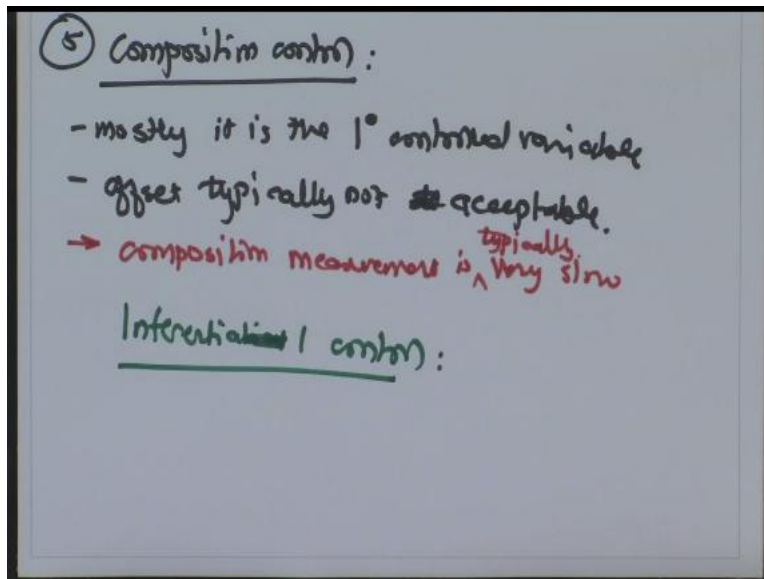 ⑤ Composition control :
- mostly it is the 1° controlled variable
- offset typically not acceptable.
→ composition measurement is typically very slow
Inferential control :